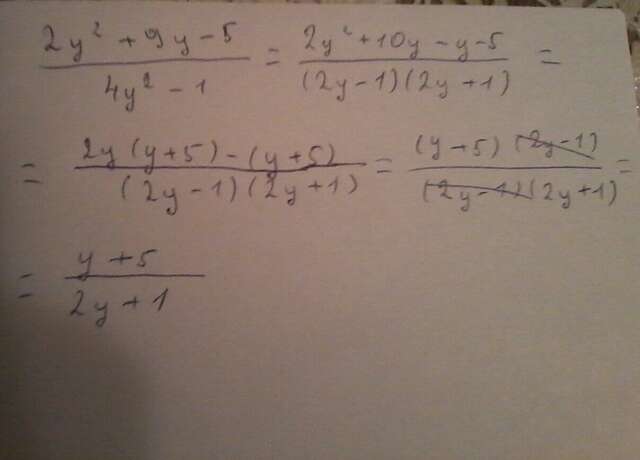 (2y² + 9y - 5)/(4y² - 1) = (2y² + 10y - y - 5)/((2y - 1)(2y + 1)) =
= (2y(y + 5) - (y + 5))/((2y - 1)(2y + 1)) = ((y + 5)(2y - 1))/((2y - 1)(2y + 1)) =
= (y + 5)/(2y + 1)